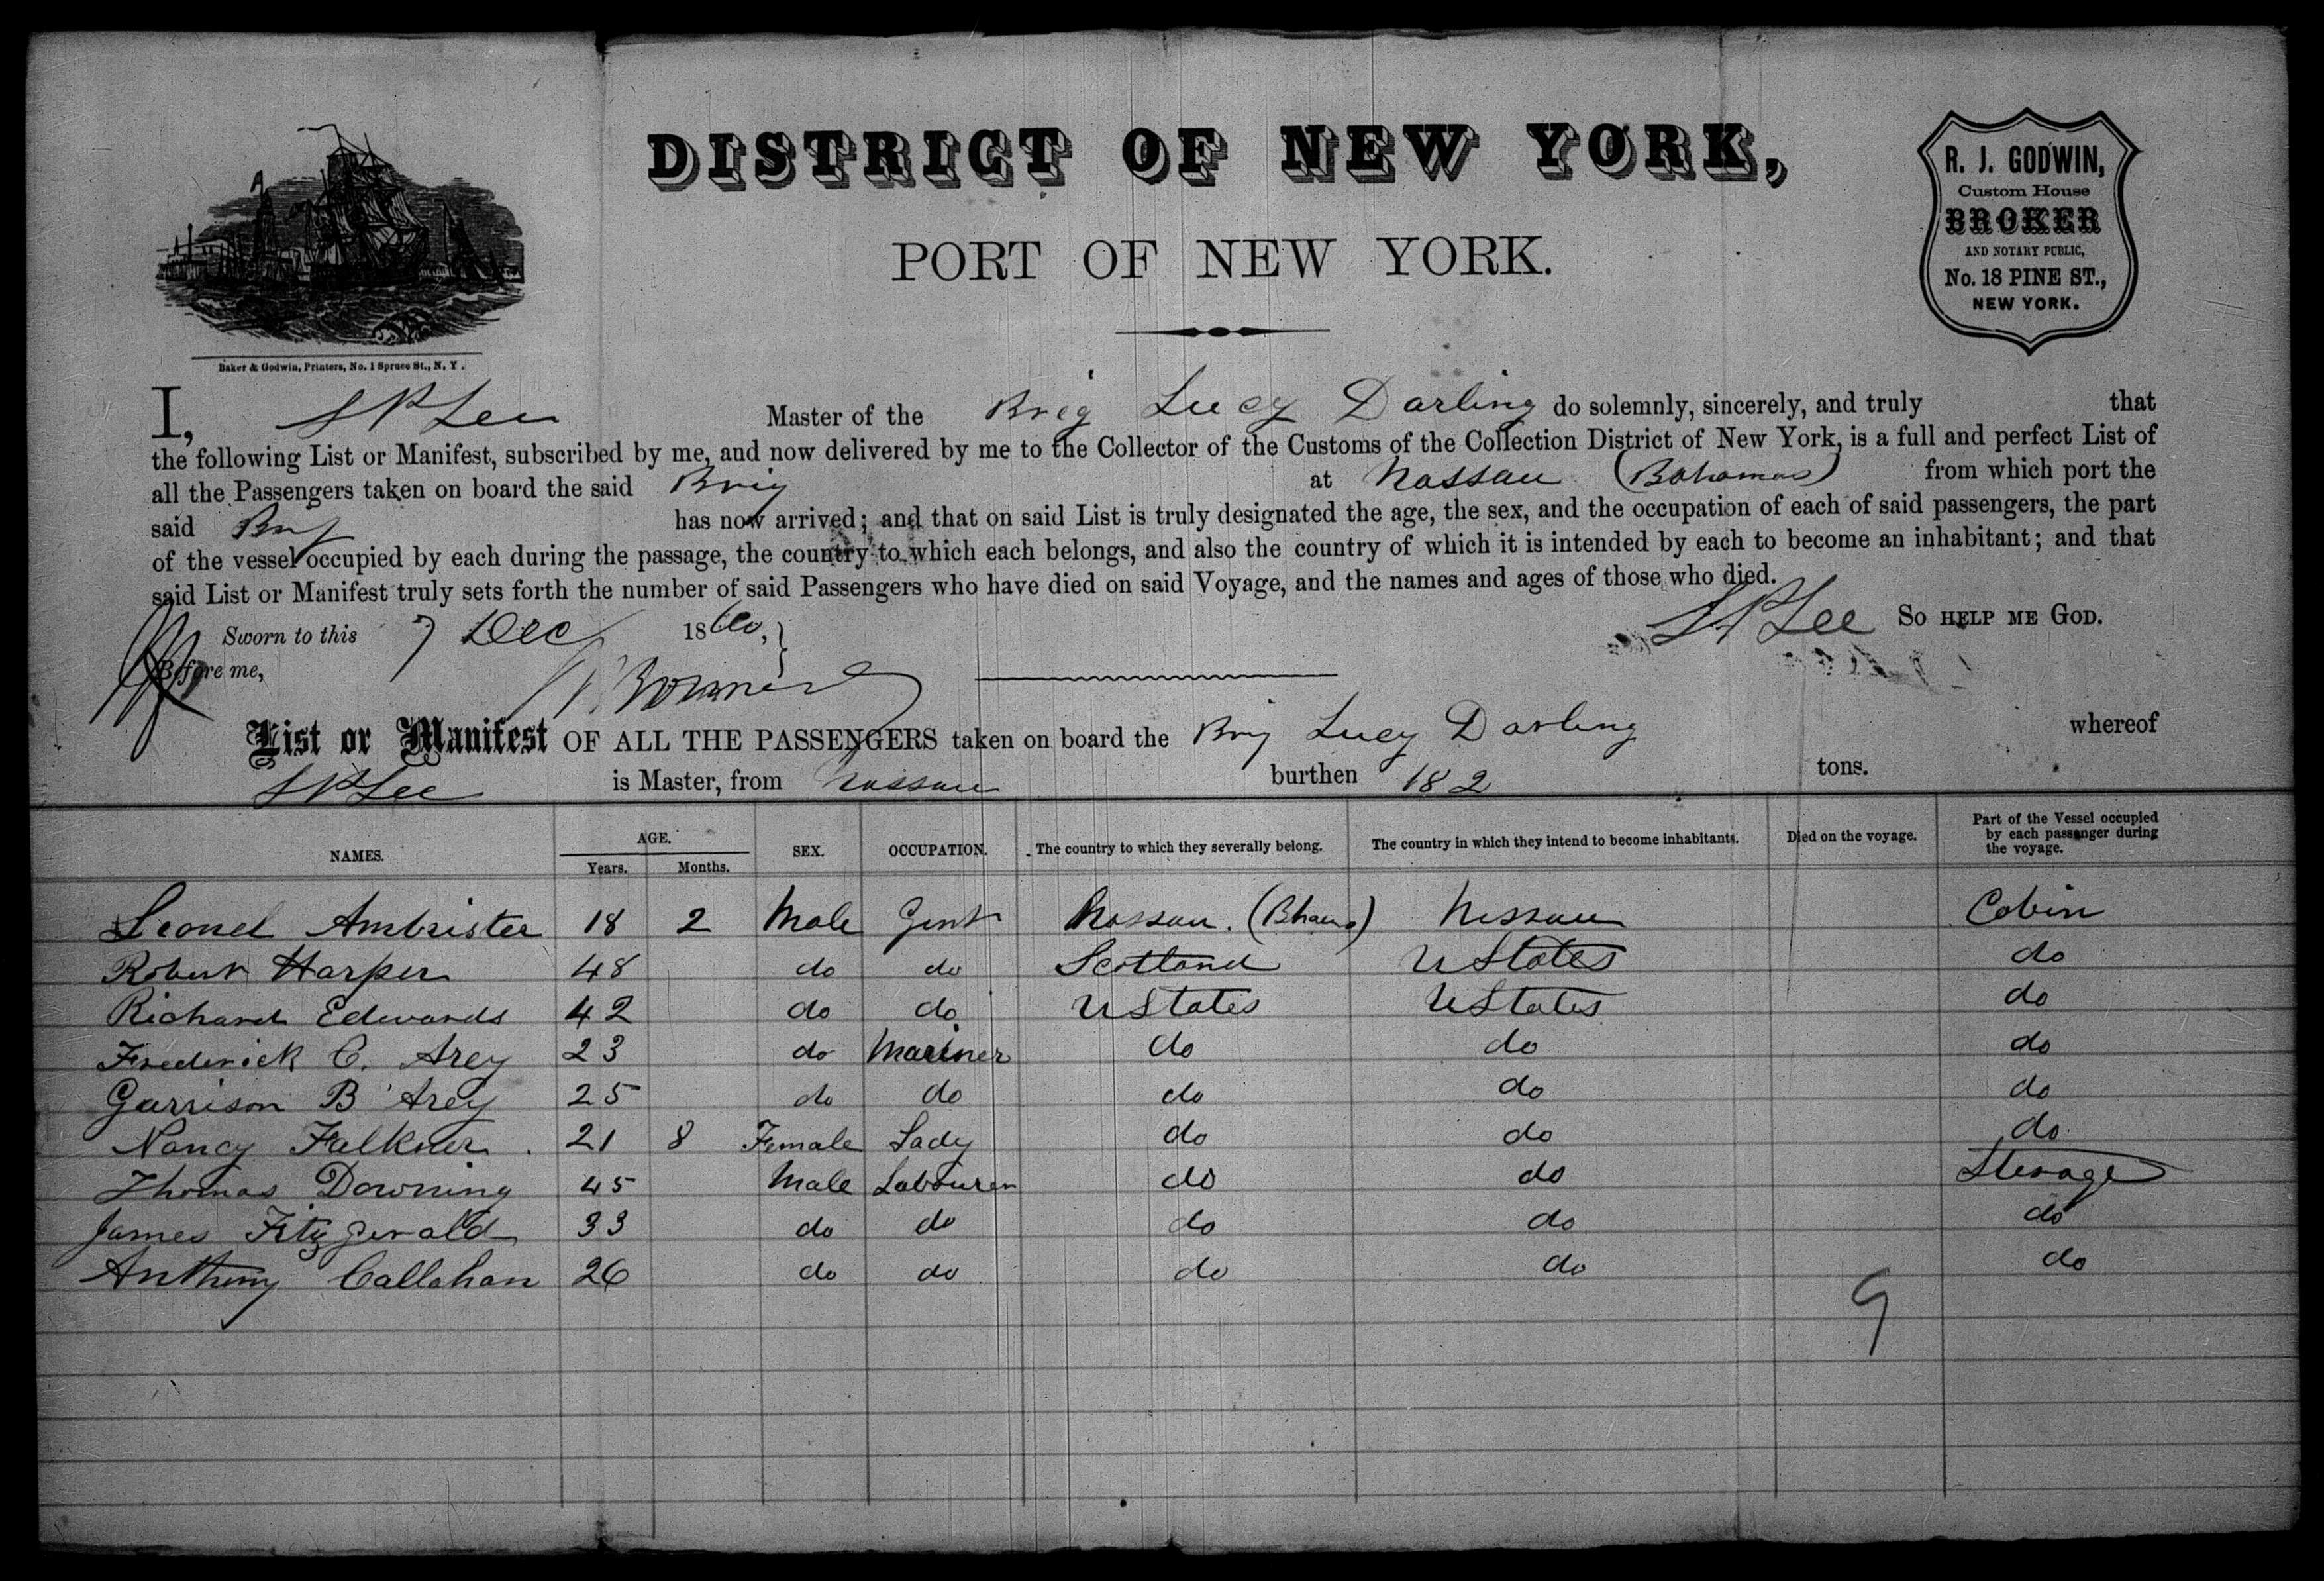 DISTRICT OF NEW YORK,
PORT OF NEW YORK.
R. J. GODWIN,
Custom House
BROKER
AND NOTARY PUBLIC,
No. 18 PINE ST.,
NEW YORK.
Baker & Godwin, Printers, No. 1 Spruce St., N. Y.
I, S P Lee Master of the Brig Lucy Darling do solemnly, sincerely, and truly that
the following List or Manifest, subscribed by me, and now delivered by me to the Collector of the Customs of the Collection District of New York, is a full and perfect List of
all the Passengers taken on board the said Brig at Nassau (Bahamas) from which port the
said Brig has now arrived; and that on said List is truly designated the age, the sex, and the occupation of each of said passengers, the part
of the vessel occupied by each during the passage, the country to which each belongs, and also the country of which it is intended by each to become an inhabitant; and that
said List or Manifest truly sets forth the number of said Passengers who have died on said Voyage, and the names and ages of those who died.
Sworn to this 7 Dec 1860, S P Lee So HELP ME GOD.
Before me,
List or Manifest OF ALL THE PASSENGERS taken on board the Brig Lucy Darling whereof
S P Lee is Master, from Nassau burthen 182 tons.
NAMES. AGE. Years. Months. SEX. OCCUPATION. The country to which they severally belong. The country in which they intend to become inhabitants. Died on the voyage. Part of the Vessel occupied by each passenger during the voyage.
Leonel Ambrister 18 2 Male Gent Nassau. (Bhams) Nassau Cabin
Robert Harper 48 do do Scotland U States do
Richard Edwards 42 do do U States U States do
Frederick C. Arey 23 do Mariner do do do
Garrison B Arey 25 do do do do do
Nancy Falkner. 21 8 Female Lady do do do
Thomas Downing 45 Male Labourer do do Sterage
James Fitzgerald 33 do do do do do
Anthony Callahan 26 do do do do do
9